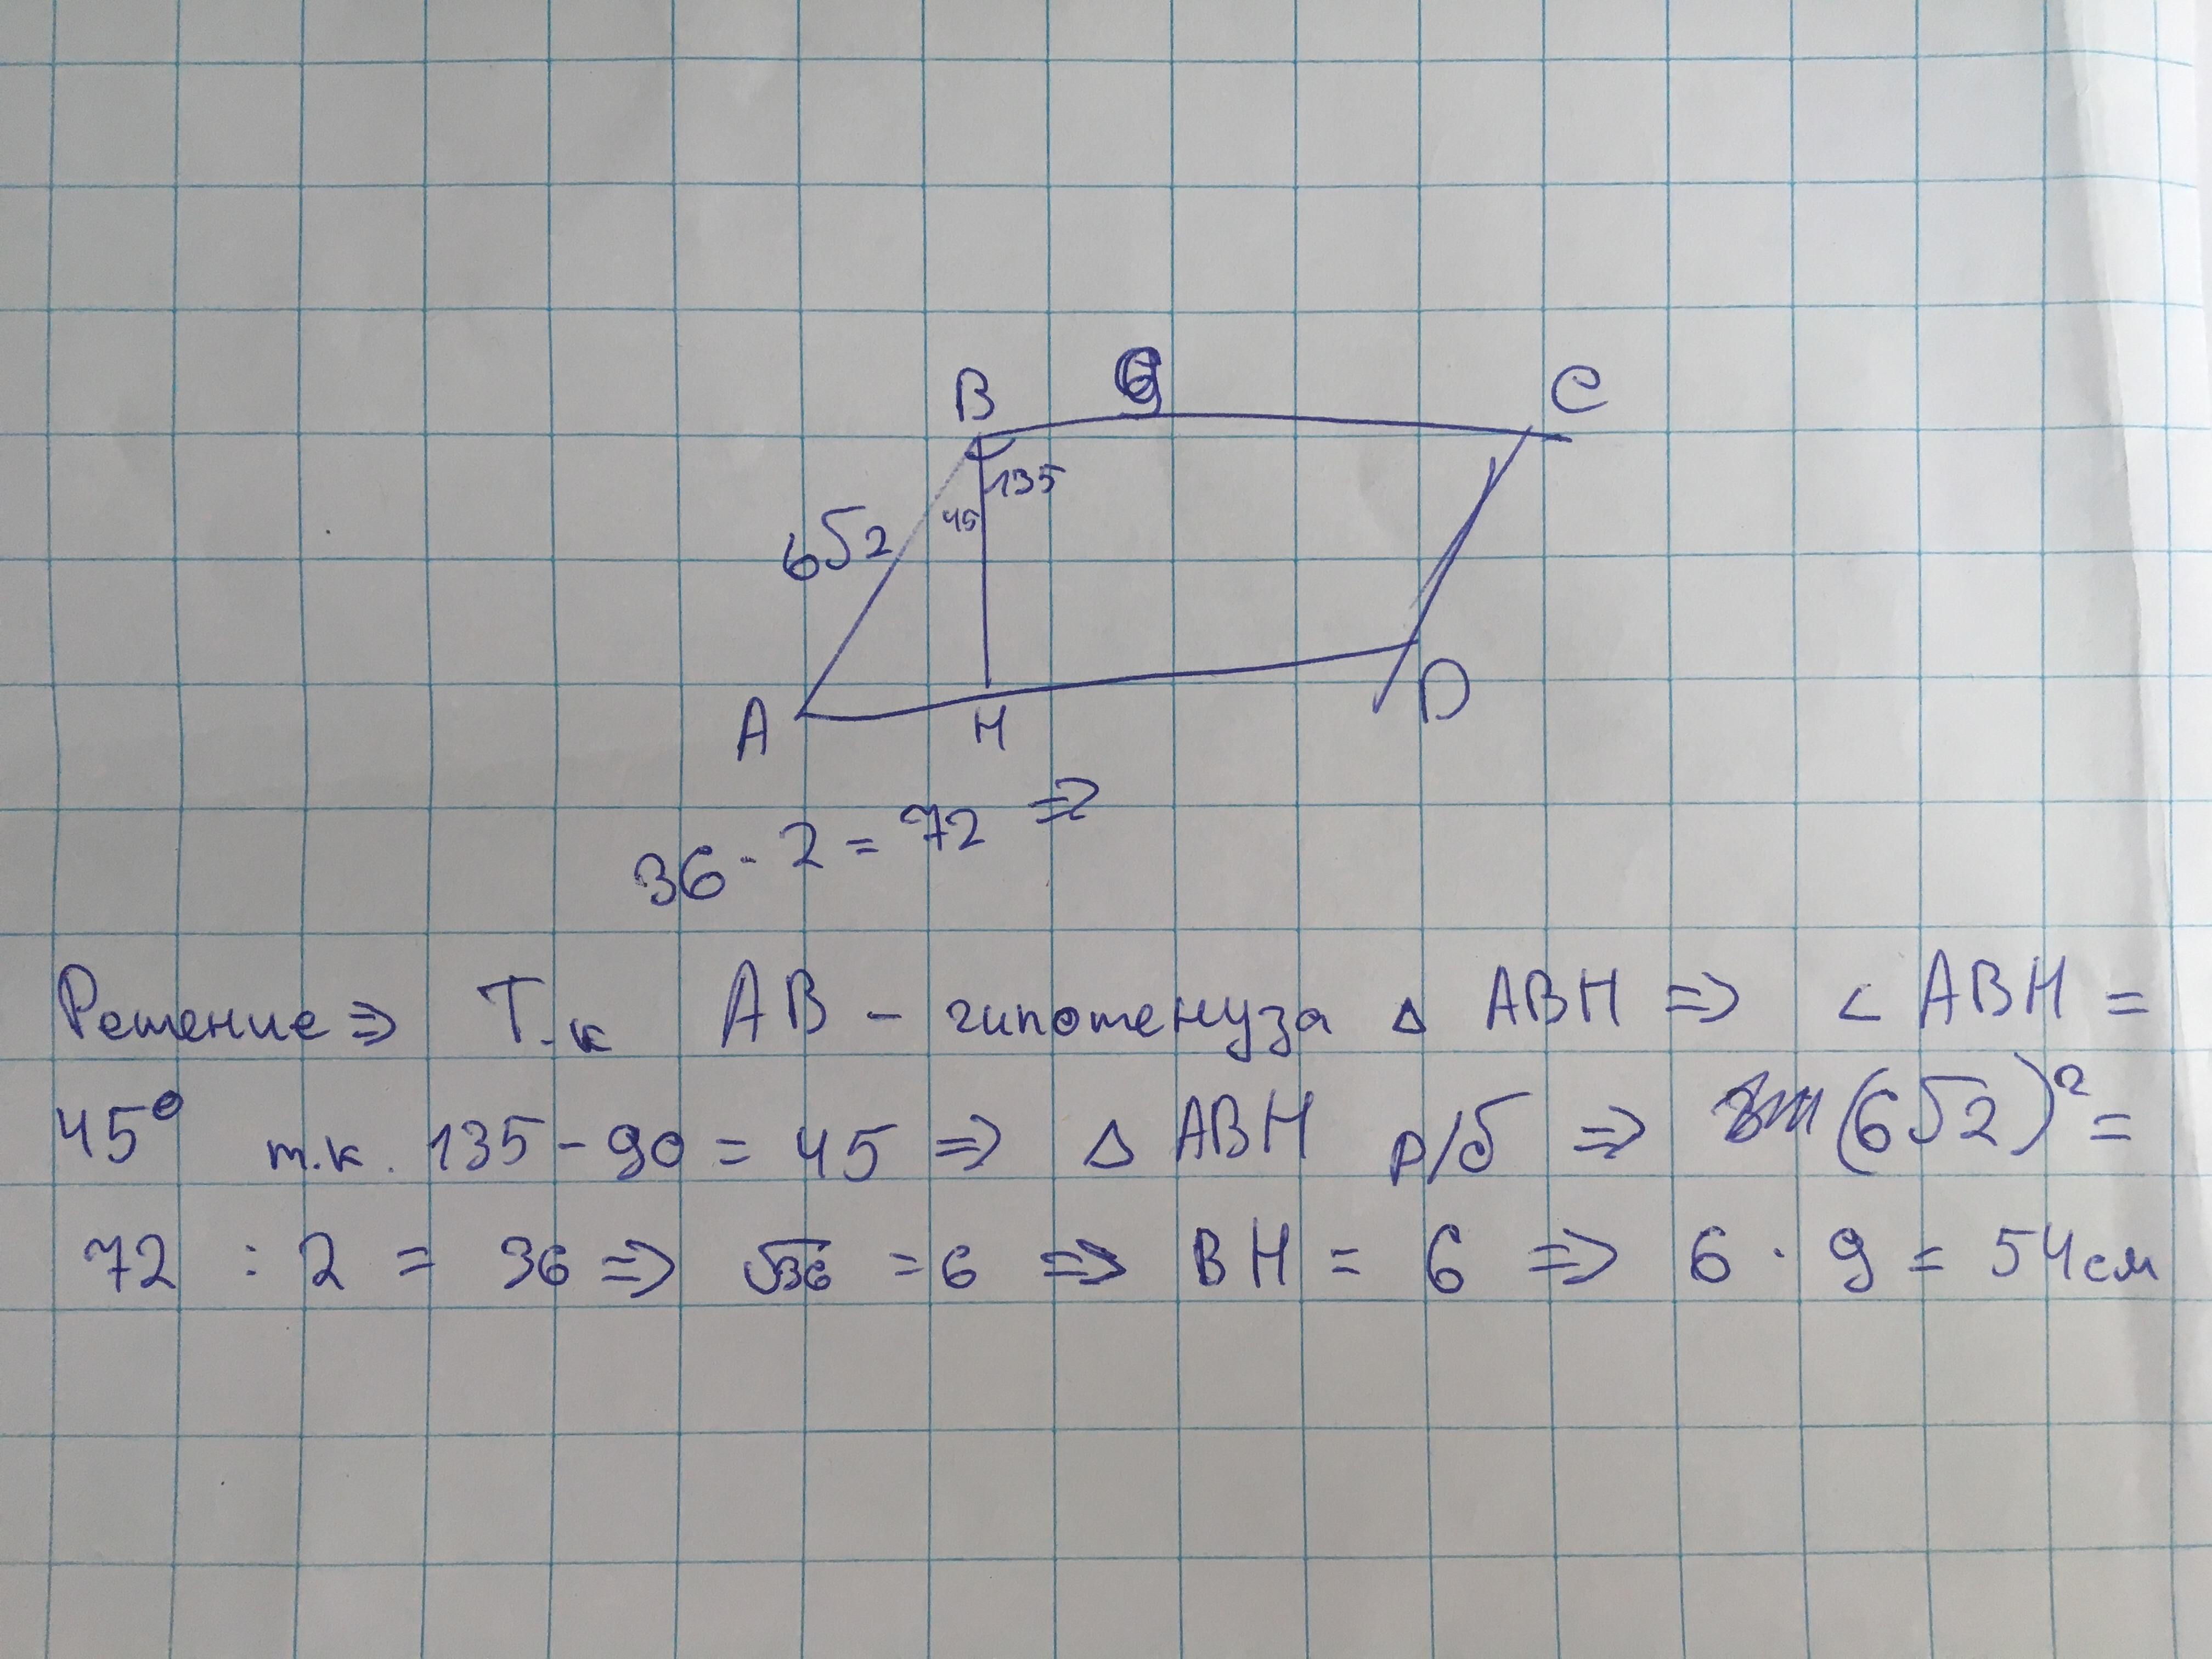 B 9 C
135
45
6√2
A H D
36 · 2 = 72 ⇒
Решение ⇒ Т.к АВ - гипотенуза Δ ABH ⇒ < ABH =
45° т.к. 135 - 90 = 45 ⇒ Δ ABH р/б ⇒ (6√2)² =
72 : 2 = 36 ⇒ √36 = 6 ⇒ BH = 6 ⇒ 6 · 9 = 54см